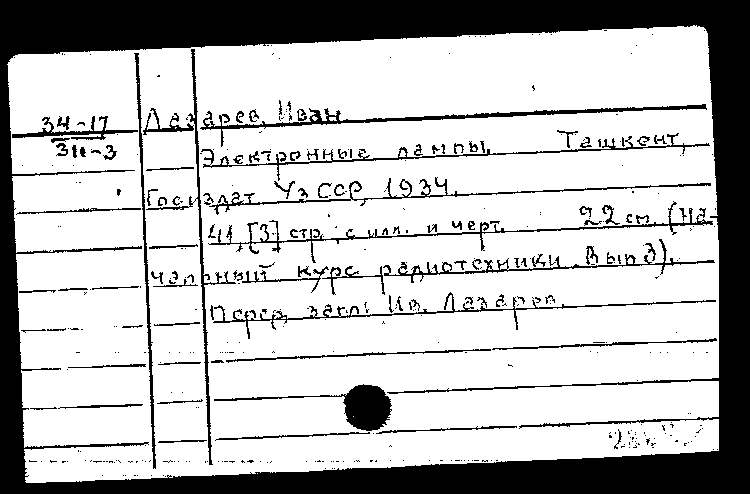 34-17
Лазарев, Иван
31-3
Электронные лампы. Ташкент,
Госиздат УзССР, 1934.
41, [3] стр., с илл. и черт. 22 см. (На-
чальный курс радиотехники. Вып 3).
Перед загл: Ив. Лазарев.